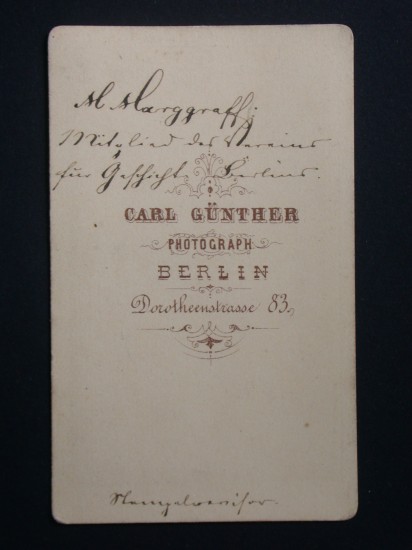 M Marggraff,
Mitglied des Vereins
für Geschichte Berlins.
CARL GÜNTHER
PHOTOGRAPH
BERLIN
Dorotheenstrasse 83.
Stempelrevisor.